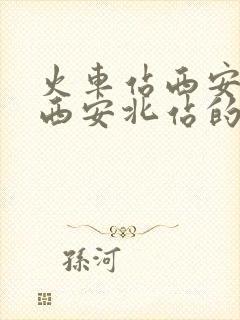 火車佔西安
西安北佔的
孫河